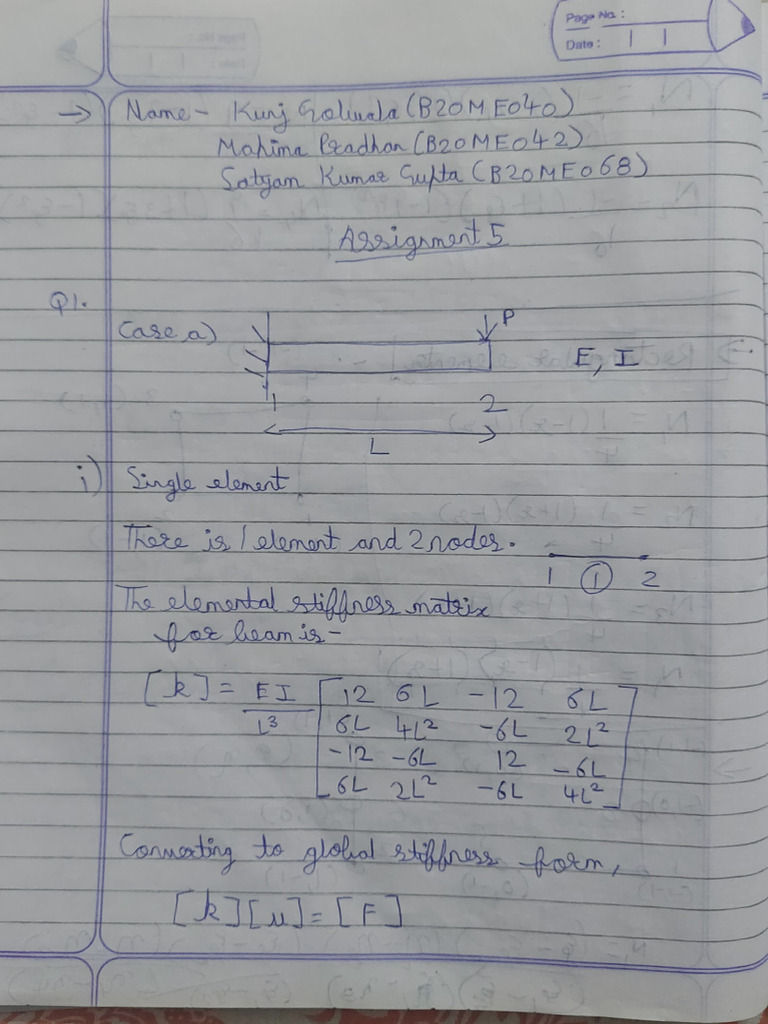 Page No. :
Date :
→ Name - Kunj Goliwala (B20ME040)
Mahima Pradhan (B20ME042)
Satyam Kumar Gupta (B20ME068)
Assignment 5
Q1.
Case a)
P
E, I
1 2
L
i) Single element
There is 1 element and 2 nodes.
1 ① 2
The elemental stiffness matrix
for beam is -
[k] = EI/L³ [12 6L -12 6L
6L 4L² -6L 2L²
-12 -6L 12 -6L
6L 2L² -6L 4L²]
Converting to global stiffness form,
[k][u] = [F]